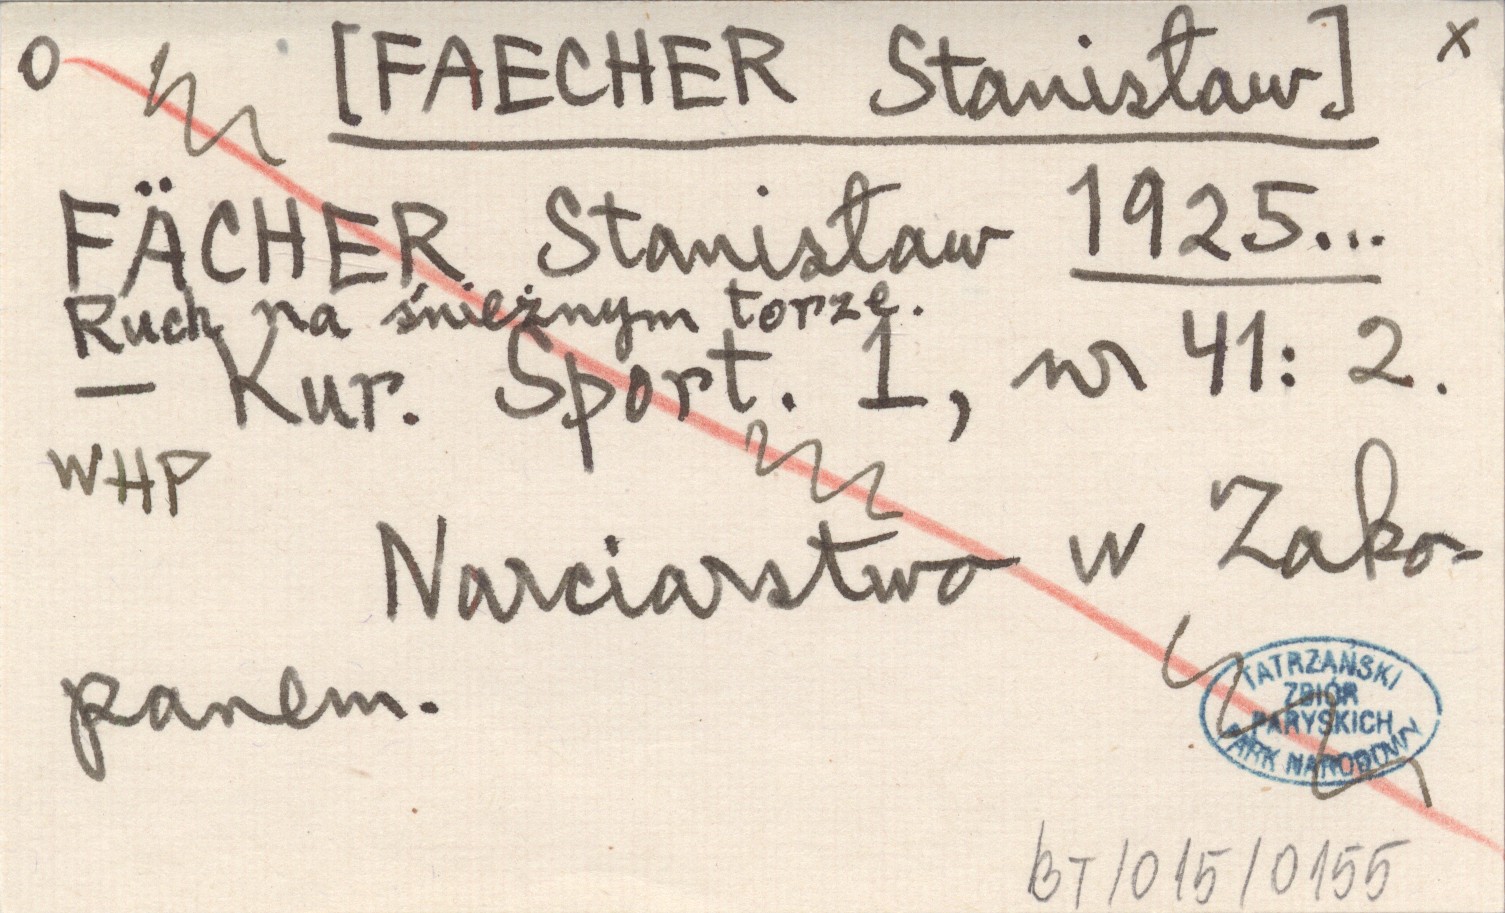 O [FAECHER Stanisław] x
FÄCHER Stanisław 1925...
Ruch na śnieżnym torze.
— Kur. Sport. 1, nr 41: 2.
WHP
Narciarstwo w Zako-
panem.
TATRZAŃSKI
ZBIÓR
PARYSKICH
PARK NARODOWY
BT/015/0155